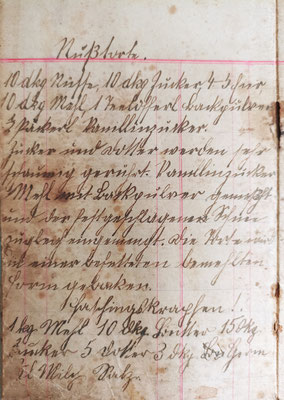 Nußtorte.
10 dkg Nüsse, 10 dkg Zucker 4 Eier
10 dkg Mehl 1 Teelöfferl Backpulver
Päckerl Vanillinzucker.
Zucker und Dotter werden sehr
schaumig gerührt. Vanillinzucker
Mehl mit Backpulver gemischt
und der festgeschlagene Schnee
zugleich eingemengt. Die Torte wird
in einer befetteten bemehlten
Form gebaken.
Faschingskrapfen!
1 kg Mehl 10 dkg Butter 15 dkg
Zucker 5 Doter 3 dkg Germ
Milch Salz